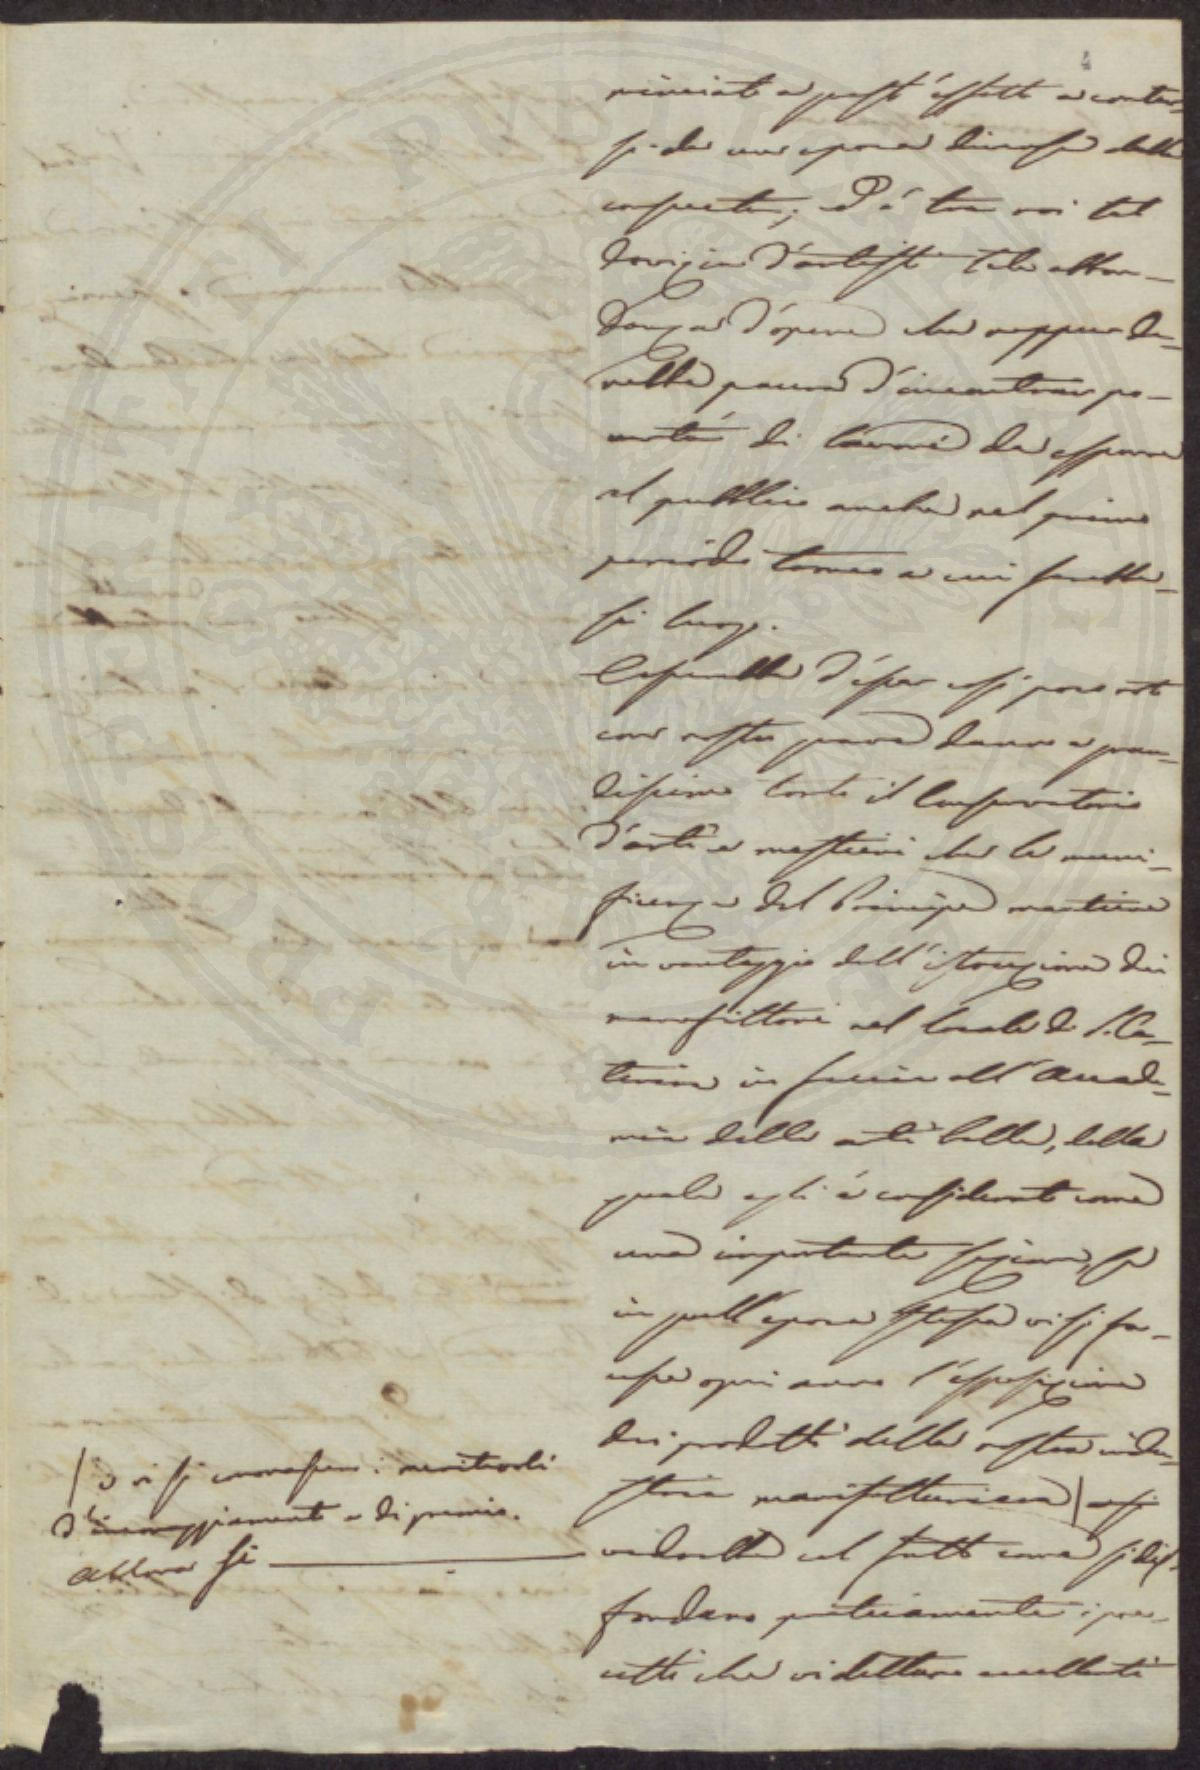 4
minciato a quest'effetto a contar-
si da un'epoca dimessa dalla
consueta; ed è tra noi tal
dovizia d'artisti tale abbon-
danza d'opere che neppur da-
rebbe paura d'incontrar po-
vertà di lavori da esporre
al pubblico anche nel primo
periodo torneo a cui sarebbe-
si luogo.
Cesserebbe d'esser così poco noto
con nostro grave danno e gran-
dissimo torto il Conservatorio
d'arti e mestieri che la muni-
ficenza del Principe mantiene
in vantaggio dell'istruzione dei
manifattori nel locale di S. Ca-
terina in faccia all'Accade-
mia delle arti belle, della
quale egli è considerato come
una importante sezione, se
in quell'epoca stessa vi si fa-
cesse ogni anno l'esposizione
dei prodotti della nostra indu-
stria manifatturiera | e si
vedrebbe col fatto come si dif-
fondano praticamente i pre-
cetti che vi dettano eccellenti
| e vi si coronassero i meritevoli
d'incoraggiamento e di premio.
allora si